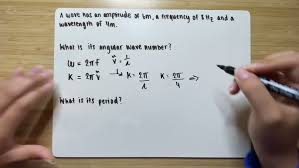 A wave has an amplitude of 6m, a frequency of 8 Hz and a
wavelength of 4m.
What is its angular wave number?
ω = 2πf ṽ = 1/λ
K = 2πṽ K = 2π/λ K = 2π/4 ⇒
What is its period?